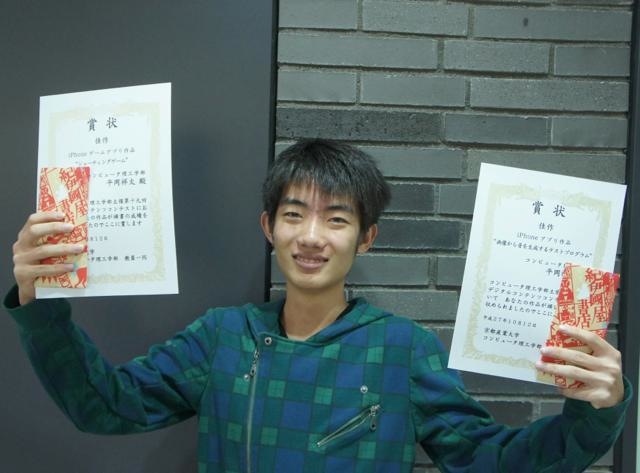 賞状
佳作
iPhone ゲームアプリ作品
"シューティングゲーム"
コンピュータ理工学部
平岡祥太 殿
理工学部主催第十九回
テンツコンテストにお
の作品が頭書の成績を
たのでここに賞します
月12日
タ理工学部 教員一同
紀伊國屋書店
賞状
佳作
iPhone アプリ作品
"画像から音を生成するテストプログラム"
コンピュータ
平岡
コンピュータ理工学部主
デジタルコンテンツコン
いて あなたの作品が
収められましたのでここに
平成27年10月12日
京都産業大学
コンピュータ理工学部
紀伊國屋書店